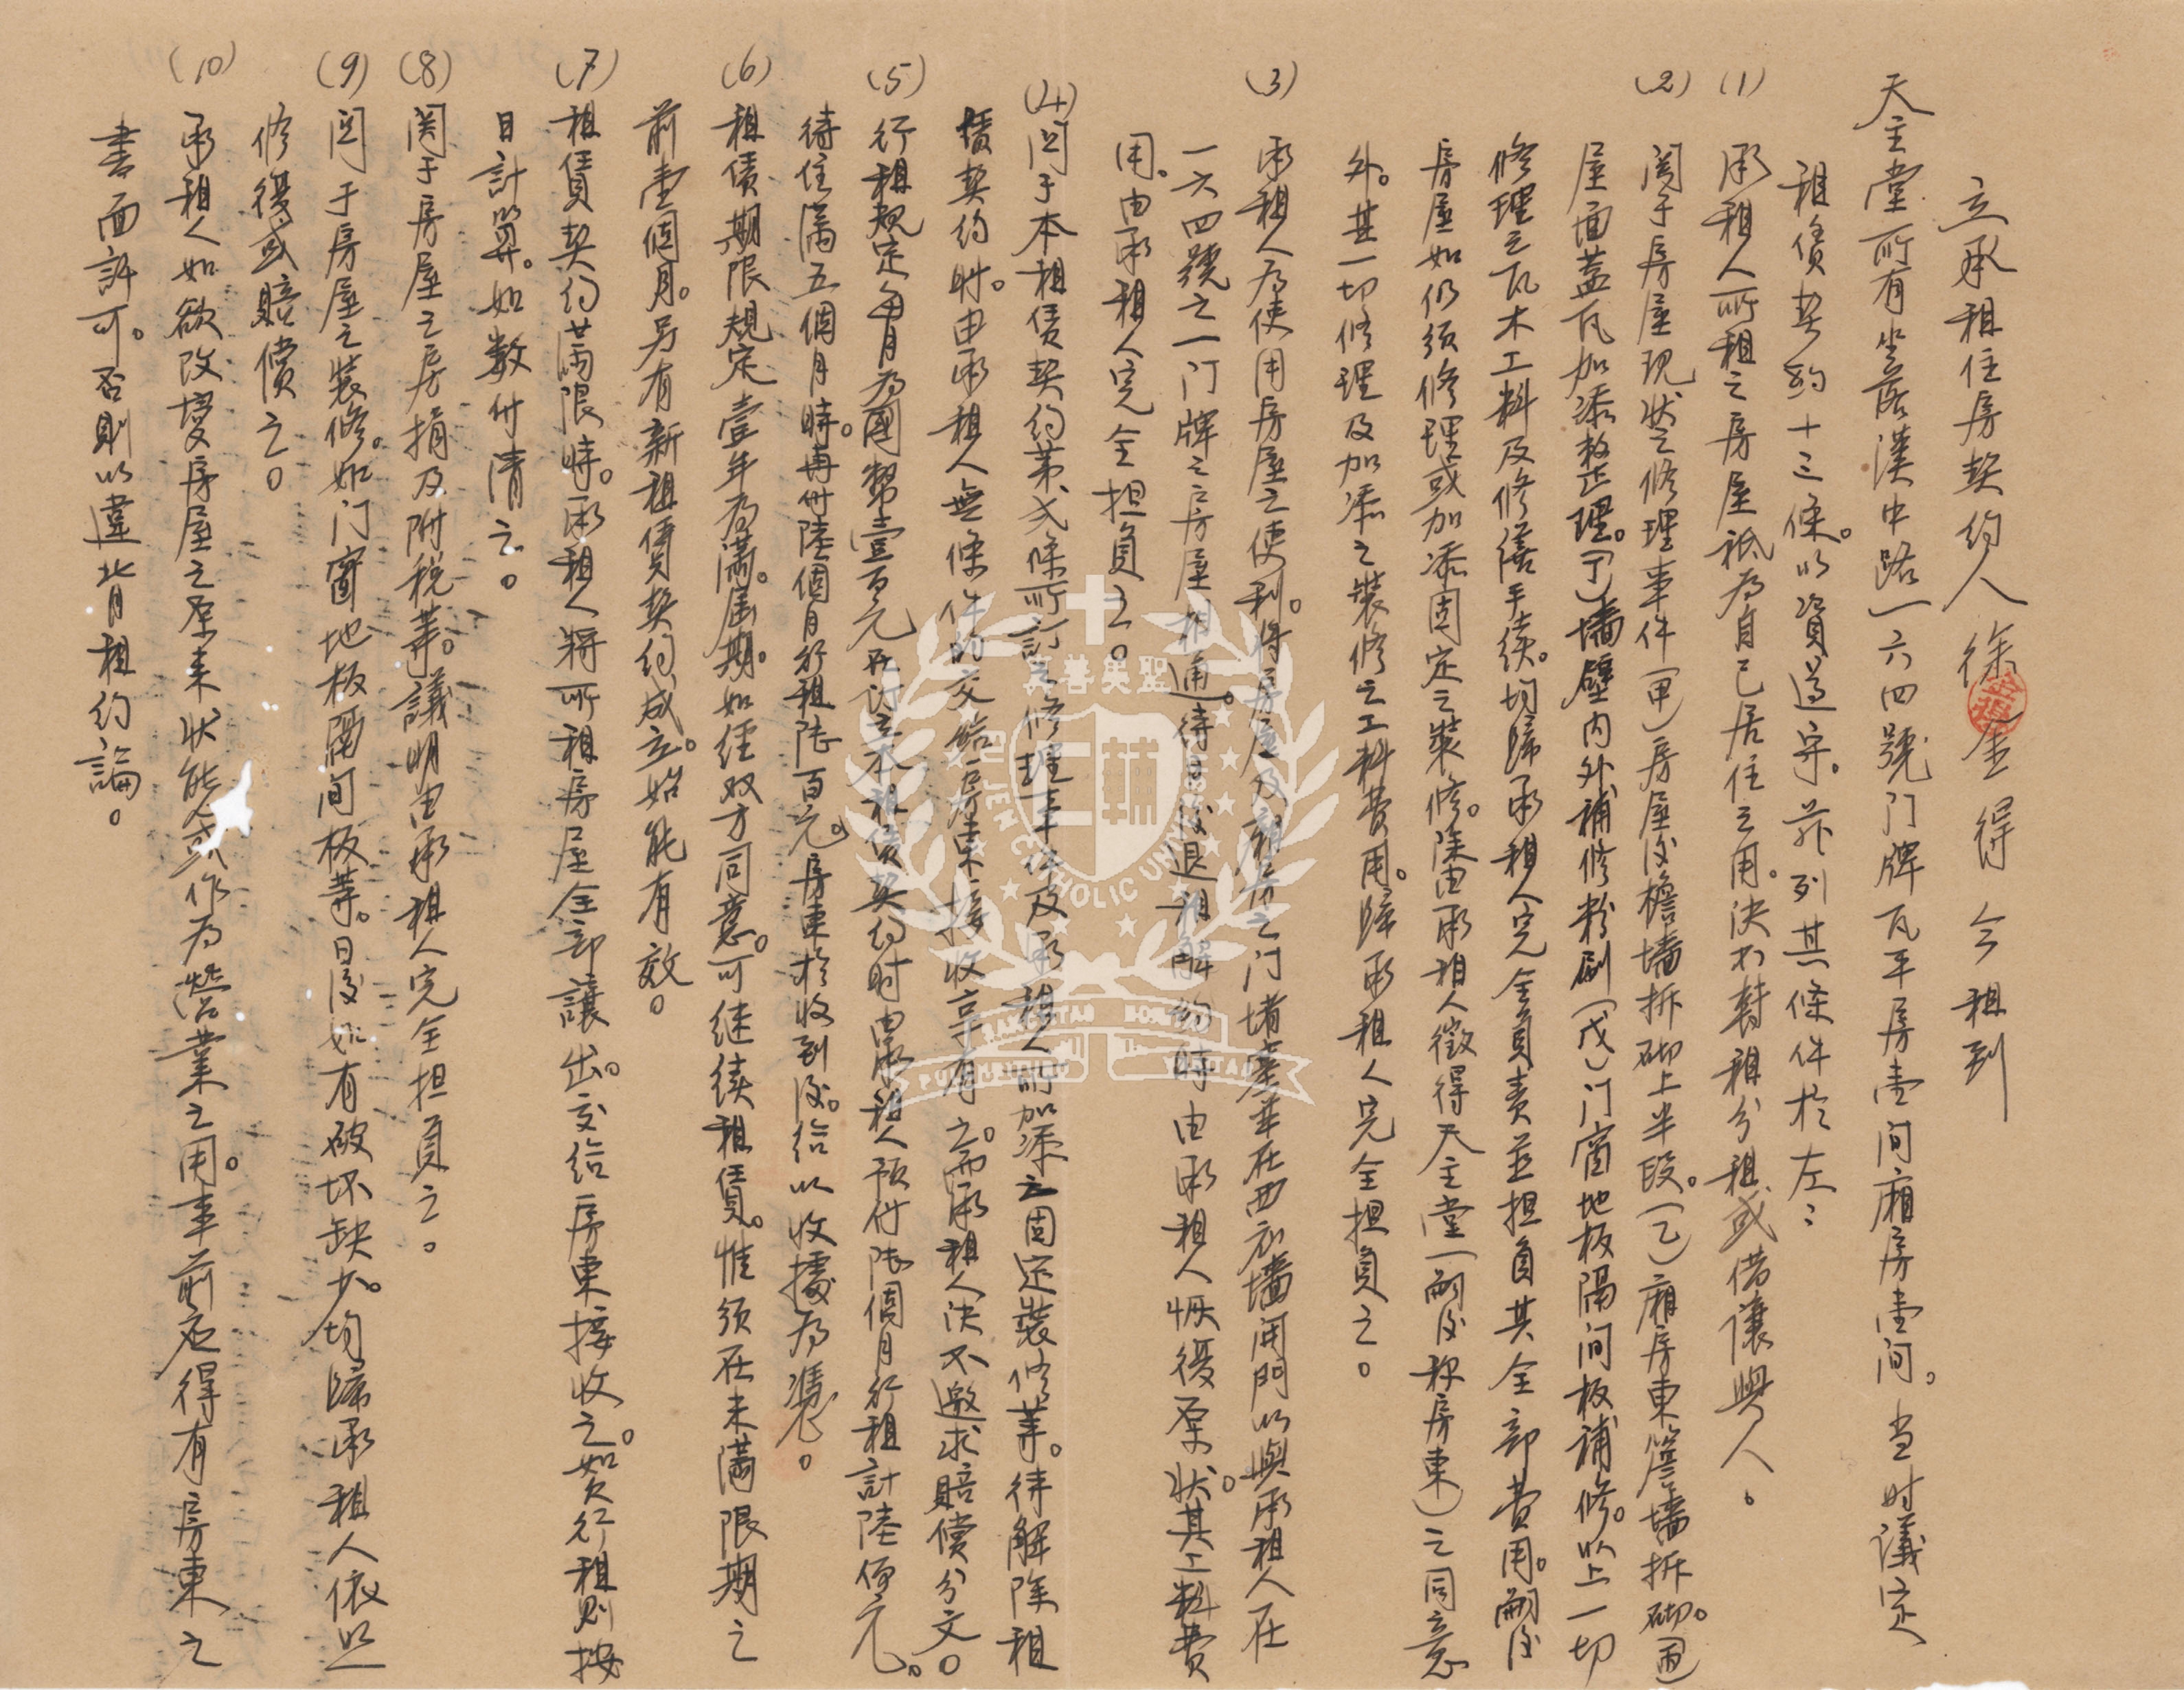 立承租住房契约人徐金得今租到
天主堂所有坐落漢中路一六四號门牌瓦平房壹间廂房壹间。当时議定
租賃契約十三條。以資遵守。茲列其條件於左：
(1) 承租人所租之房屋祗為自己居住之用。決不轉租分租或借讓與人。
(2) 関于房屋现狀之修理事件(甲)房屋後檐墙拆砌上半段。(乙)廂房東簷墻拆砌。(丙)
屋面蓋瓦加添整理。(丁)墻壁内外補修粉刷(戊)门窗地板隔间板補修。以上一切
修理之瓦木工料及修繕手续。均歸承租人完全負责並担負其全部費用。嗣後
房屋如仍须修理或加添固定之裝修。除由承租人徵得天主堂(嗣後称房東)之同意
外。其一切修理及加添之裝修之工料費用。歸承租人完全担負之。
(3) 承租人為使用房屋之便利。将房屋及廂房之门堵塞並在西衣墻開門以與承租人在
一六四號之一门牌之房屋相通。待日後退租解約時由承租人恢復原状。其工料費
用。由承租人完全担負之。
(4) 関于本租賃契约第弍條所訂之修理事件及承租人所加添之固定裝修等。待解除租
賃契约时。由承租人無條件的交給房東接收享有之。而承租人決不邀求賠償分文。
(5) 行租规定每月為國幣壹百元在订立本租賃契约时由承租人預付陸個月行租計陸佰元。
待住滿五個月時。再付陸個月行租陸百元。房東於收到後。给以收據為憑。
(6) 租賃期限規定壹年為滿。屆期。如经双方同意。可继续租賃。惟须在未滿限期之
前壹個月。另有新租賃契约成立。始能有效。
(7) 租賃契约满限時。承租人将所租房屋全部讓出。交给房東接收之。如欠行租则按
日計算。如数付清之。
(8) 関于房屋之房捐及附税等。議明由承租人完全担負之。
(9) 関于房屋之裝修。如门窗地板隔间板等。日後如有破坏缺少。均歸承租人依照
修復或賠償之。
(10) 承租人如欲改变房屋之原来状態或作為營業之用。事前应得有房東之
書面許可。否則以違背租约論。
聖美善真
輔仁
FU JEN CATHOLIC UNIVERSITY